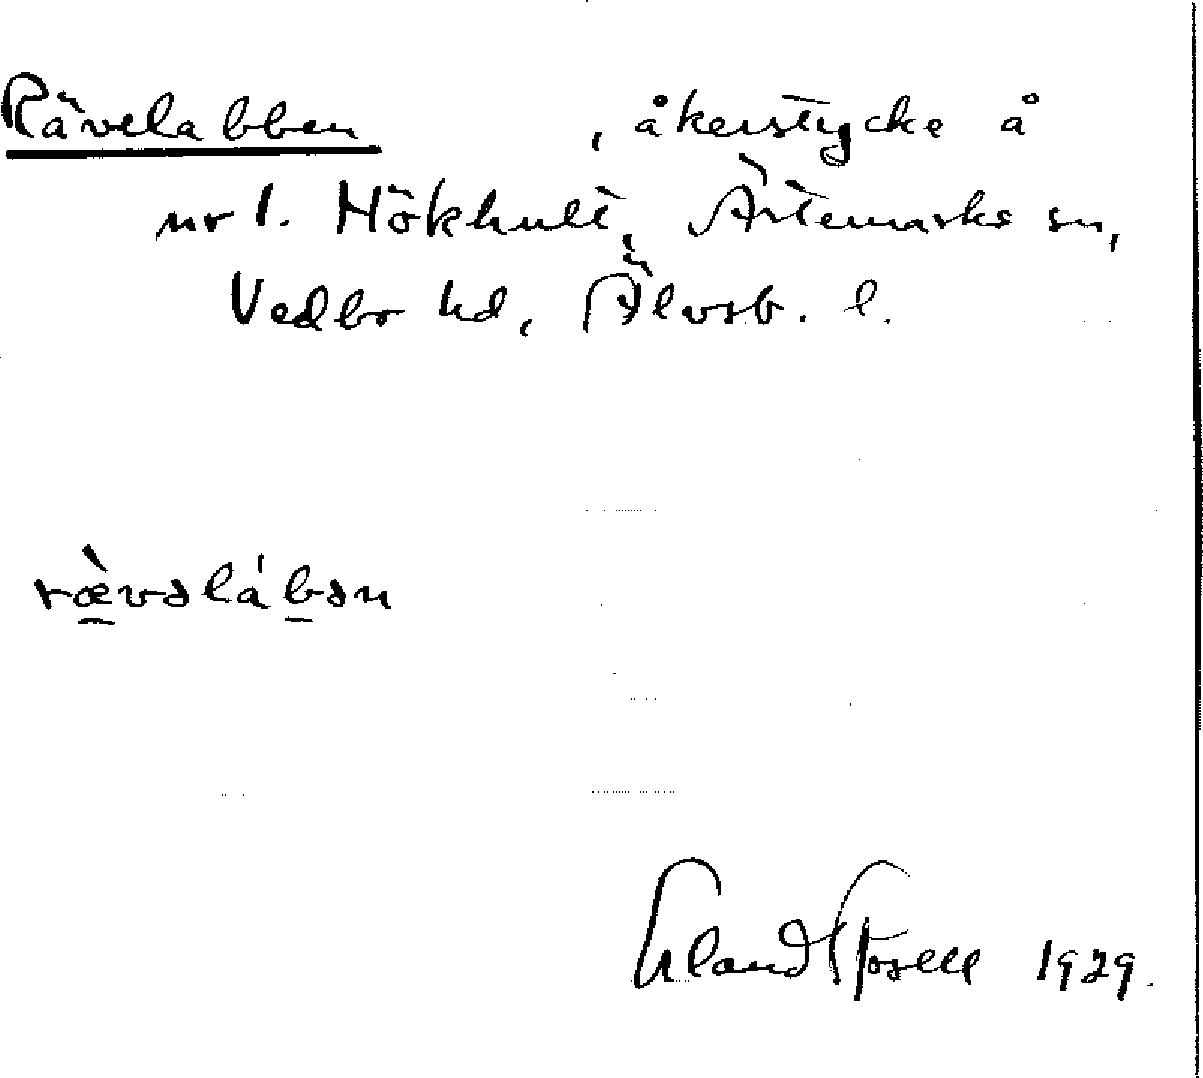 Rävelabben, åkerstycke å
nr 1. Hökhult, Ärtemarks sn,
Vedbo hd, Älvsb. l.
ræ̀vəlábən
Erland Rosell 1929.